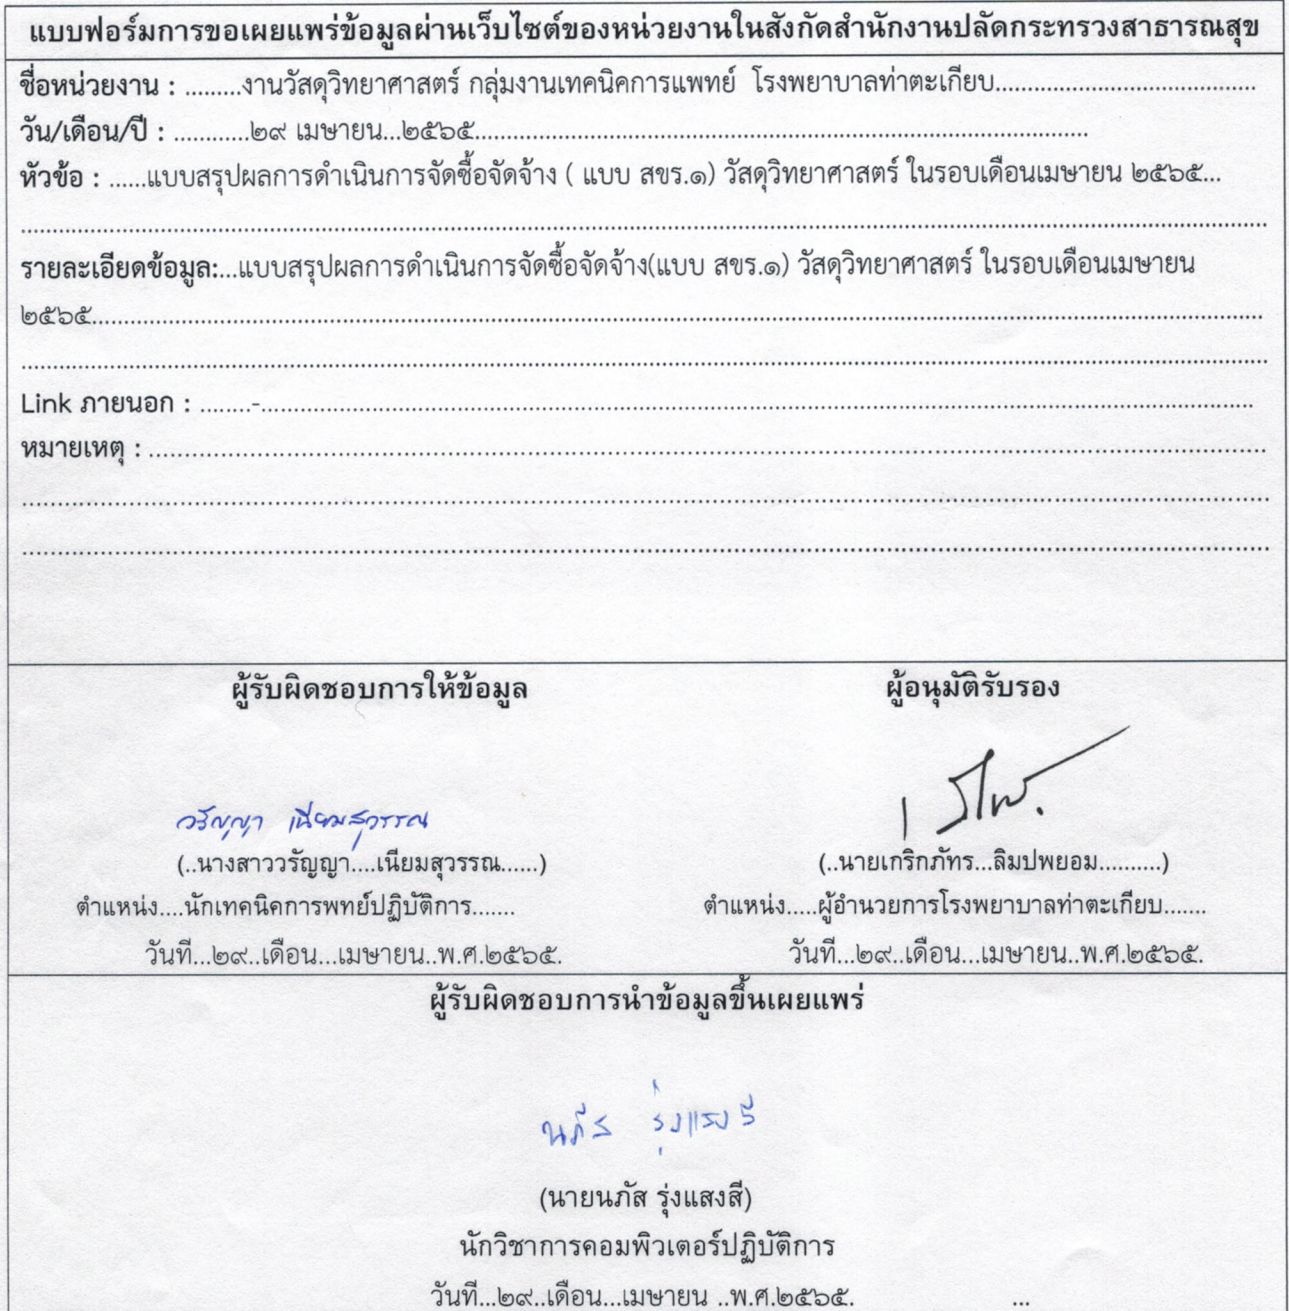 แบบฟอร์มการขอเผยแพร่ข้อมูลผ่านเว็บไซต์ของหน่วยงานในสังกัดสำนักงานปลัดกระทรวงสาธารณสุข
ชื่อหน่วยงาน : .........งานวัสดุวิทยาศาสตร์ กลุ่มงานเทคนิคการแพทย์ โรงพยาบาลท่าตะเกียบ..........................................
วัน/เดือน/ปี : ............๒๙ เมษายน...๒๕๖๕....................................................................................................
หัวข้อ : ......แบบสรุปผลการดำเนินการจัดซื้อจัดจ้าง ( แบบ สขร.๑) วัสดุวิทยาศาสตร์ ในรอบเดือนเมษายน ๒๕๖๕...
รายละเอียดข้อมูล:...แบบสรุปผลการดำเนินการจัดซื้อจัดจ้าง(แบบ สขร.๑) วัสดุวิทยาศาสตร์ ในรอบเดือนเมษายน
๒๕๖๕....................................................................................................
Link ภายนอก : ........-....................................................................................................
หมายเหตุ : ....................................................................................................
ผู้รับผิดชอบการให้ข้อมูล
ผู้อนุมัติรับรอง
วรัญญา เนียมสุวรรณ
(..นางสาววรัญญา....เนียมสุวรรณ......)
(..นายเกริกภัทร...ลิมปพยอม..........)
ตำแหน่ง....นักเทคนิคการพทย์ปฏิบัติการ.......
ตำแหน่ง.....ผู้อำนวยการโรงพยาบาลท่าตะเกียบ.......
วันที่...๒๙..เดือน...เมษายน..พ.ศ.๒๕๖๕.
วันที่...๒๙..เดือน...เมษายน..พ.ศ.๒๕๖๕.
ผู้รับผิดชอบการนำข้อมูลขึ้นเผยแพร่
นภัส รุ่งแสงสี
(นายนภัส รุ่งแสงสี)
นักวิชาการคอมพิวเตอร์ปฏิบัติการ
วันที่...๒๙..เดือน...เมษายน ..พ.ศ.๒๕๖๕. ...